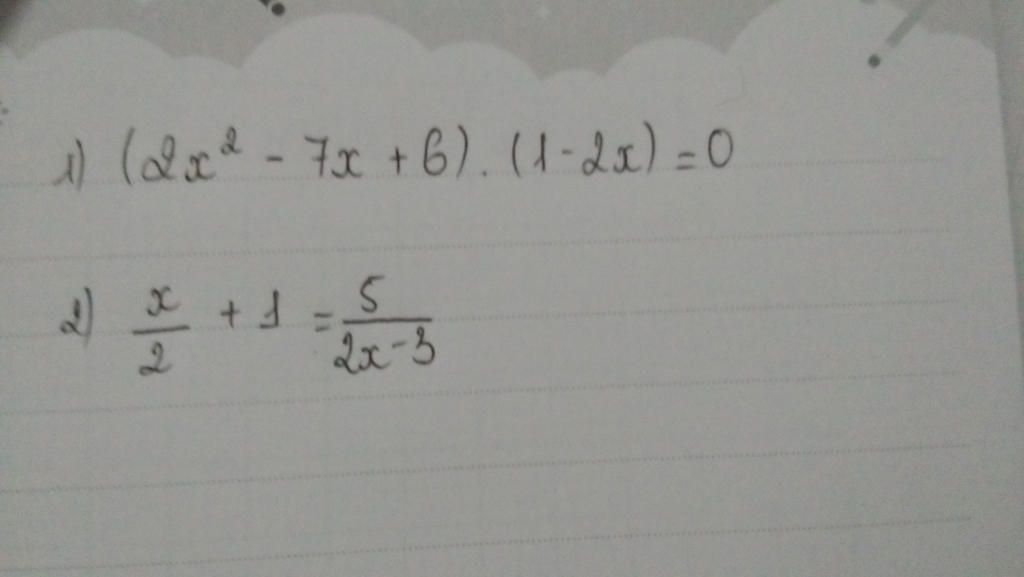 1) (2x² - 7x + 6) . (1 - 2x) = 0
2) x/2 + 1 = 5/(2x - 3)